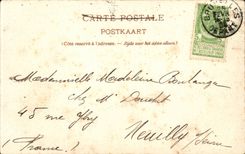 CARTE POSTALE
POSTKAART
(Côté réservé à l'adresse.) — (Zijde voor het adres alleen.)
Mademoiselle Madeleine Boulanger
chez Mr Doucht
45 rue
Neuilly s/Seine
(France)